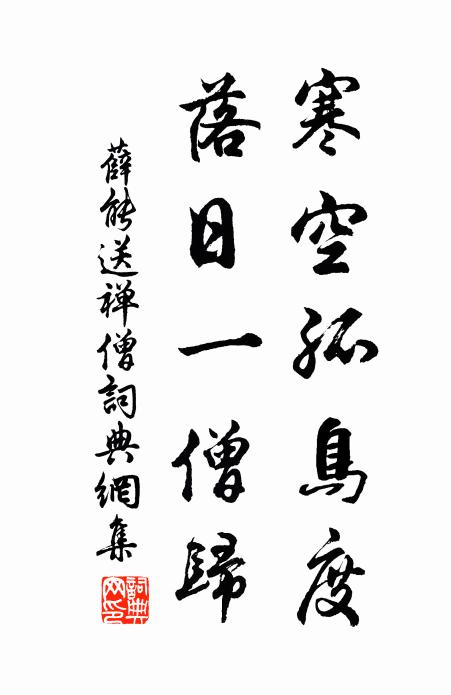 寒空孤鳥度
落日一僧歸
薛能送禅僧詞典網集
詞典網印